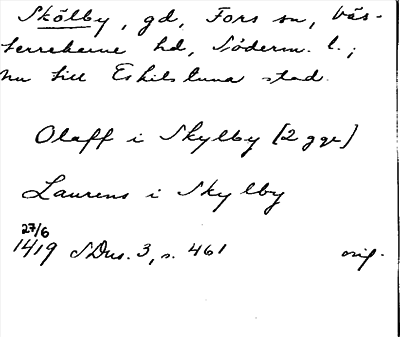 Skölby, gd, Fors sn, Väs-
terrekarne hd, Söderm. l.;
nu till Eskilstuna stad.
Olaff i Skylby [2 ggr]
Laurens i Skylby
27/6
1419 SDns. 3, s. 461 orig.